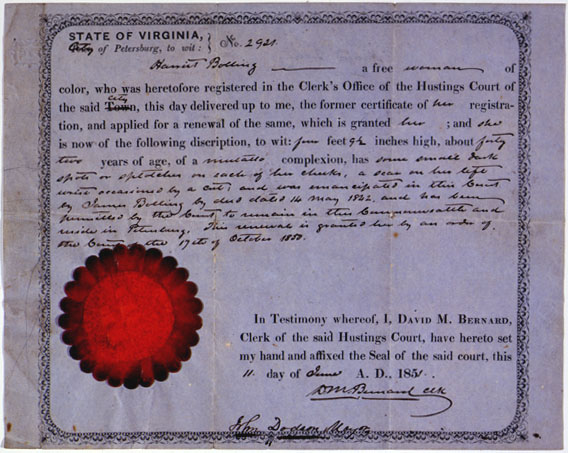 STATE OF VIRGINIA,
City of Petersburg, to wit: } No. 2921
Harriet Bolling a free woman of
color, who was heretofore registered in the Clerk's Office of the Hustings Court of
the said City Town, this day delivered up to me, the former certificate of her registra-
tion, and applied for a renewal of the same, which is granted her ; and she
is now of the following discription, to wit: five feet inches high, about forty
two years of age, of a mulatto complexion, has some small dark
spots or splotches on each of her cheeks, a scar on her left
wrist occasioned by a cut, and was emancipated in this Court
by James Bolling by deed dated 14 May 1842, and has been
permitted by the Court to remain in this Commonwealth and
reside in Petersburg. This renewal is granted her by an order of
the Court of the 17th of October 1850.
In Testimony whereof, I, DAVID M. BERNARD,
Clerk of the said Hustings Court, have hereto set
my hand and affixed the Seal of the said court, this
11 day of June A. D., 1851.
DM. Bernard clk
John Dodson Mayor